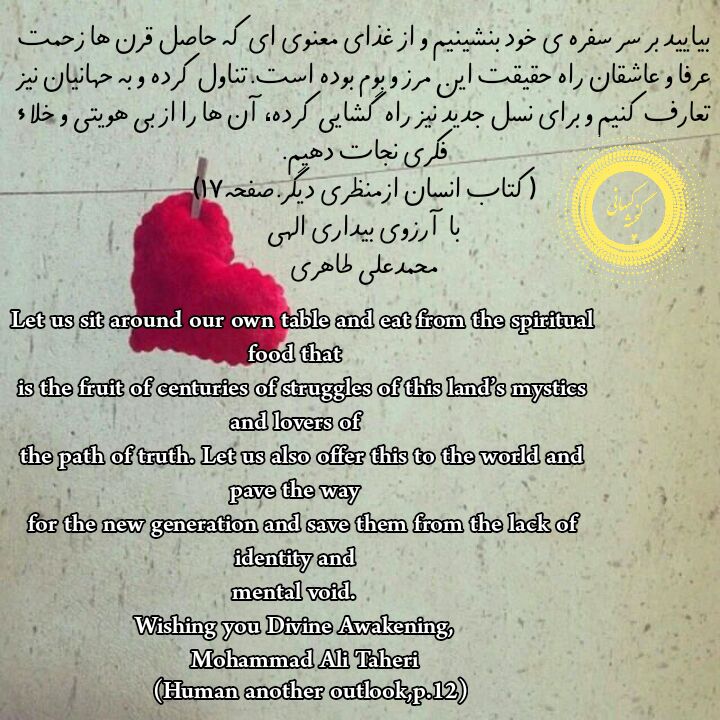 بیایید بر سر سفره ی خود بنشینیم و از غذای معنوی ای که حاصل قرن ها زحمت
عرفا و عاشقان راه حقیقت این مرز و بوم بوده است. تناول کرده و به جهانیان نیز
تعارف کنیم و برای نسل جدید نیز راه گشایی کرده، آن ها را از بی هویتی و خلاء
فکری نجات دهیم.
( کتاب انسان ازمنظری دیگر.صفحه۱۷)
با آرزوی بیداری الهی
محمدعلی طاهری
Let us sit around our own table and eat from the spiritual
food that
is the fruit of centuries of struggles of this land's mystics
and lovers of
the path of truth. Let us also offer this to the world and
pave the way
for the new generation and save them from the lack of
identity and
mental void.
Wishing you Divine Awakening,
Mohammad Ali Taheri
(Human another outlook,p.12)